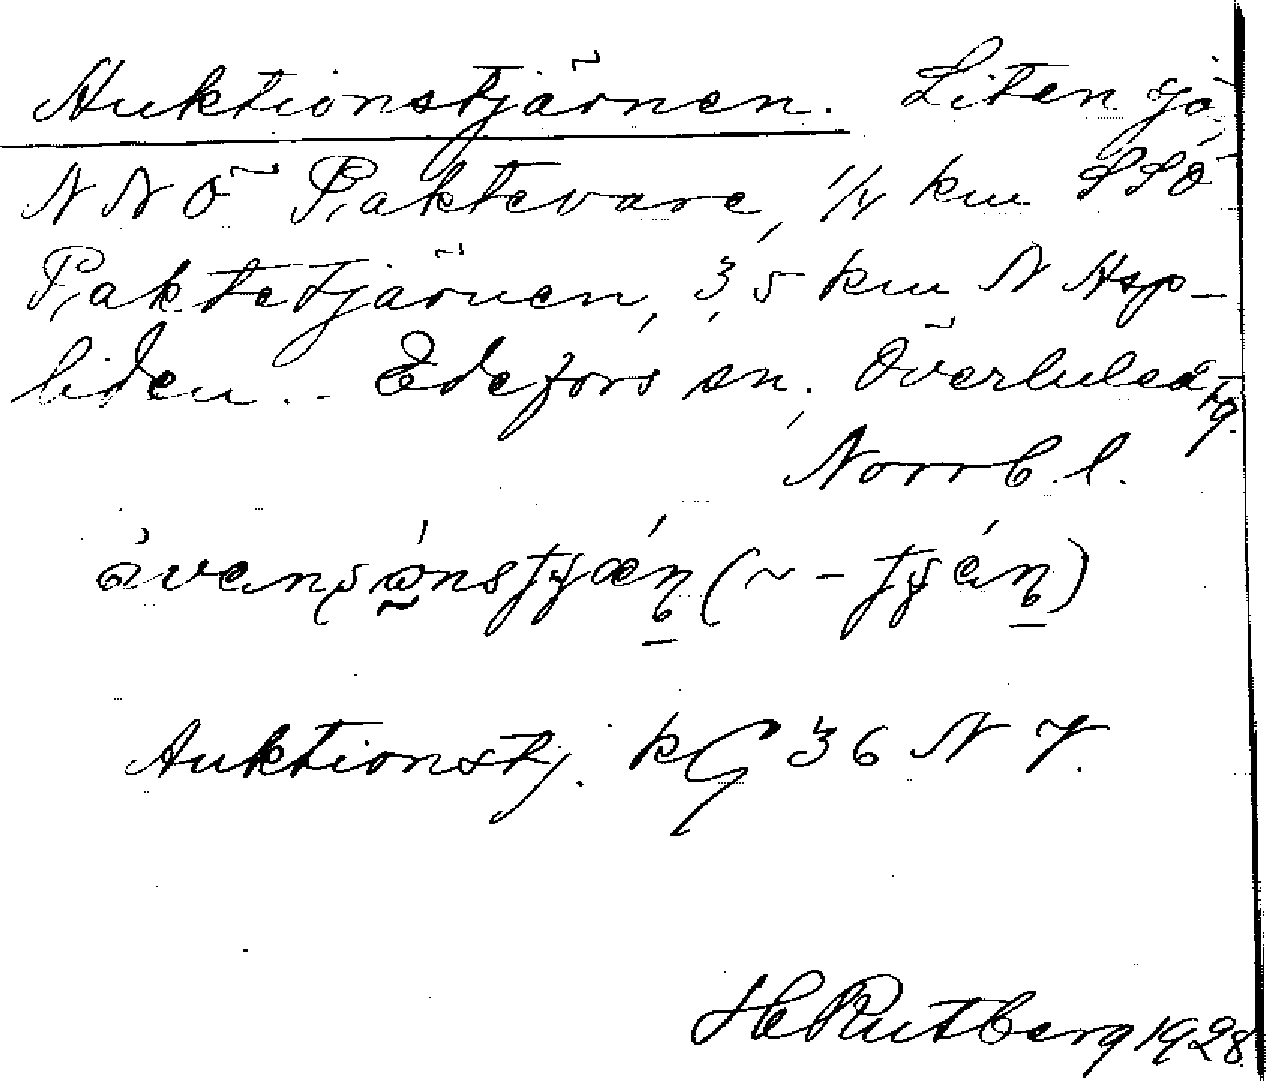 Auktionstjärnen. Liten sjö,
NNÖ Paktevare, 1/4 km SSÖ
Paktetjärnen, 3,5 km N Asp-
liden. Edefors sn, Överluleå tg.
Norrb. l.
Auktionstj. kG 36 N 7.
H Rutberg 1928